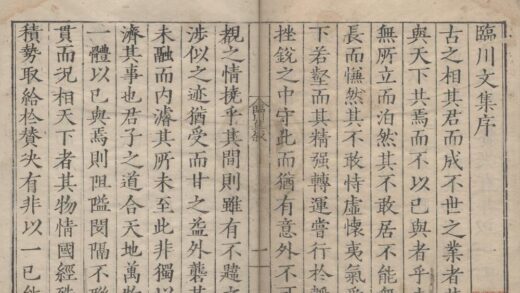 臨川文集序
古之相其君而成不世之業者
與天下共焉而不以已與者乎
無所立而泊然其不敢居不能無
長而憮然其不敢恃虛懷夷氣受
下若壑而其精強轉運嘗行於
挫銳之中守此而猶有意外不
一
親之情撓乎其間則雖有不韙
涉似之迹猶受而甘之益外襲
未融而內濬其所未至此非獨以
濟其事也君子之道合天地萬
一體以已與焉則阻隘閡隔不
貫而況相天下者其物情國經
積勢取給於贊决有非以一已能